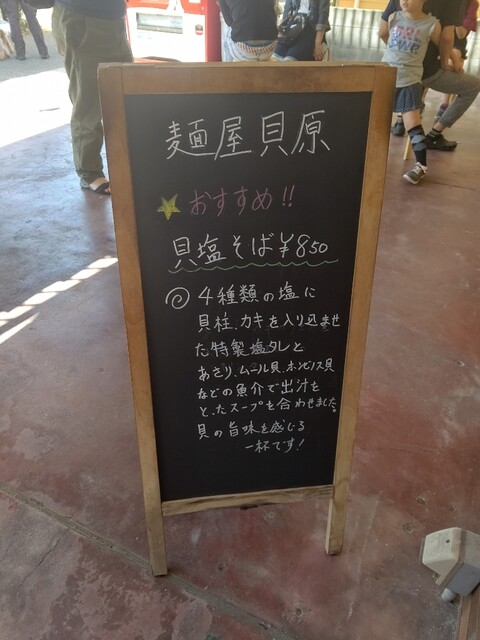 麺屋貝原
おすすめ!!
貝塩そば¥850
4種類の塩に
貝柱、カキを入り込ませ
た特製塩タレと
あさり、ムール貝、ホンビノス貝
などの魚介で出汁を
とったスープを合わせました。
貝の旨味を感じる
一杯です!